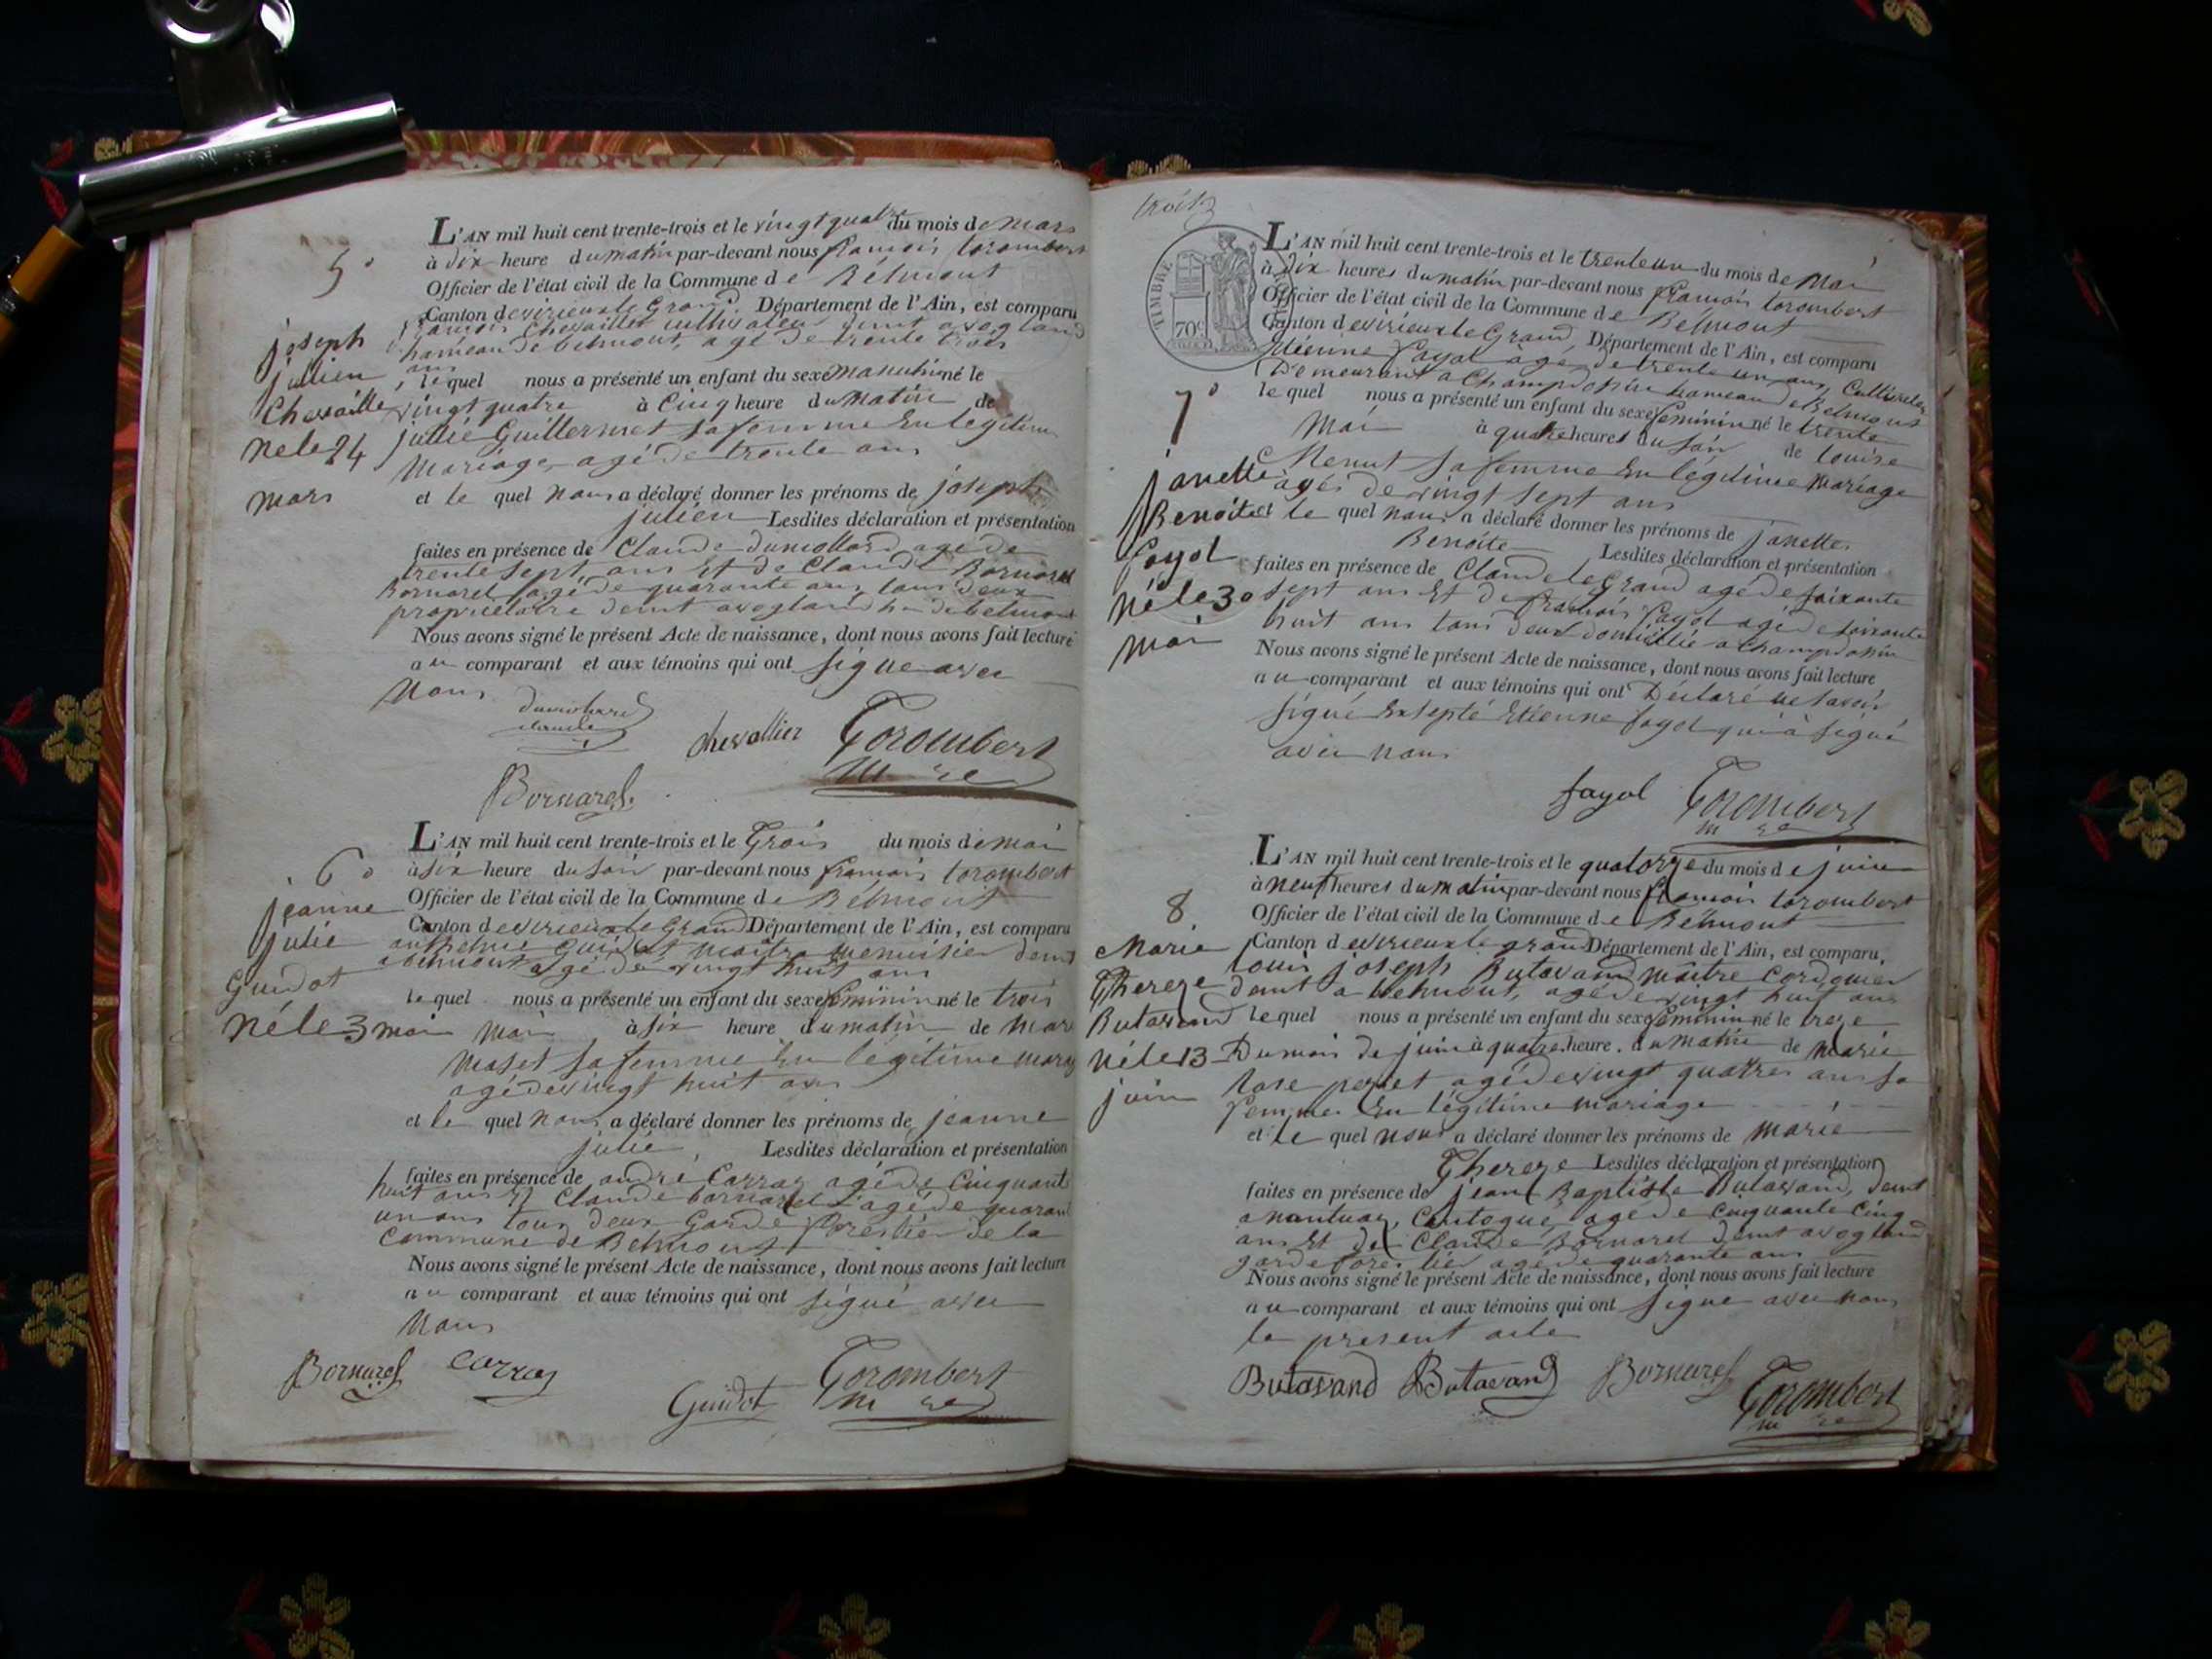 5°
joseph
julien
Chevaillier
né le 24
mars
L'AN mil huit cent trente-trois et le vingt quatre du mois de mars
à dix heure du matin par-devant nous francois torombert
Officier de l'état civil de la Commune de Bélmont
Canton de virieux le Grand. Département de l'Ain, est comparu
francois Chevaillier cultivateur demt a vogland
hameau de belmont, agé de trente trois
ans, le quel nous a présenté un enfant du sexe masculin né le
vingt quatre à Cinq heure du matin de
jullie Guillermet sa femme En légitime
Mariage, agé de trente ans
et le quel nous a déclaré donner les prénoms de joseph
julien Lesdites déclaration et présentation
faites en présence de Claude dumollard agé de
trente sept ans Et de Claude Bornarel
Bornarel agé de quarante ans tous deux
proprietaire demt a vogland hau de belmont
Nous avons signé le présent Acte de naissance, dont nous avons fait lecture
au comparant et aux témoins qui ont signe avec
Nous
dumollard
claude
chevallier
Torombert
m re
Bornarel
6°
jeanne
julie
Guidot
Né le 3 mai
L'AN mil huit cent trente-trois et le Trois du mois de mai
à six heure du soir par-devant nous francois torombert
Officier de l'état civil de la Commune de Bélmont
Canton de virieux le Grand Département de l'Ain, est comparu
anthelme Guidot maitre menuisier demt
a belmont agé de vingt huit ans
le quel nous a présenté un enfant du sexe féminin né le trois
mai à six heure du matin de Marie
Maset sa femme En légitime mariage
agé de vingt huit ans
et le quel nous a déclaré donner les prénoms de jeanne
julie, Lesdites déclaration et présentation
faites en présence de andré Carraz agé de Cinquante
huit ans Et Claude bornarel agé de quarante
un ans tous deux Garde Forestier de la
Commune de Belmont
Nous avons signé le présent Acte de naissance, dont nous avons fait lecture
au comparant et aux témoins qui ont signé avec
Nous
Bornarel
Carraz
Guidot
Torombert
m re
trois
TIMBRE
70c
7°
janette
Benoite
fayol
né le 30
mai
L'AN mil huit cent trente-trois et le trente un du mois de Mai
à dix heures du matin par-devant nous francois torombert
Officier de l'état civil de la Commune de Belmont
Canton de virieux le Grand, Département de l'Ain, est comparu
Etienne fayol agé de trente un ans Cultivateur
Demeurant a Champdossin hameau de Belmont
le quel nous a présenté un enfant du sexe féminin né le trente
Mai à quatre heures du soir de louise
Menut sa femme En légitime Mariage
agés de vingt sept ans
et le quel nous a déclaré donner les prénoms de janette
Benoite Lesdites déclaration et présentation
faites en présence de Claude le Grand agé de soixante
sept ans Et de francois fayol agé de soixante
huit ans tous deux domicilié a Champdossin
Nous avons signé le présent Acte de naissance, dont nous avons fait lecture
au comparant et aux témoins qui ont Déclaré ne savoir
signé Exsepté Etienne fayol qui à signé
avec nous
fayol
Torombert
m re
8
Marie
Thereze
Butavand
né le 13
juin
L'AN mil huit cent trente-trois et le quatorze du mois de juin
à neuf heures du matin par-devant nous francois torombert
Officier de l'état civil de la Commune de Bélmont
Canton de virieux le grand Département de l'Ain, est comparu,
louis joseph Butavand maître Cordonnier
demt a belmont, agé de vingt huit ans
le quel nous a présenté un enfant du sexe féminin né le treze
Du mois de juin à quatre heure du matin de Marie
Rose perret agé de vingt quatre ans sa
femme En légitime mariage
et le quel nous a déclaré donner les prénoms de marie
Thereze Lesdites déclaration et présentation
faites en présence de jean Baptiste Butavand, demt
a nantuay, agé de cinquante cinq
ans Et de Claude Bornarel demt a vogland
garde forestier agé de quarante ans
Nous avons signé le présent Acte de naissance, dont nous avons fait lecture
au comparant et aux témoins qui ont signe avec nous
le present acte
Butavand
Butavand
Bornarel
Torombert
m re